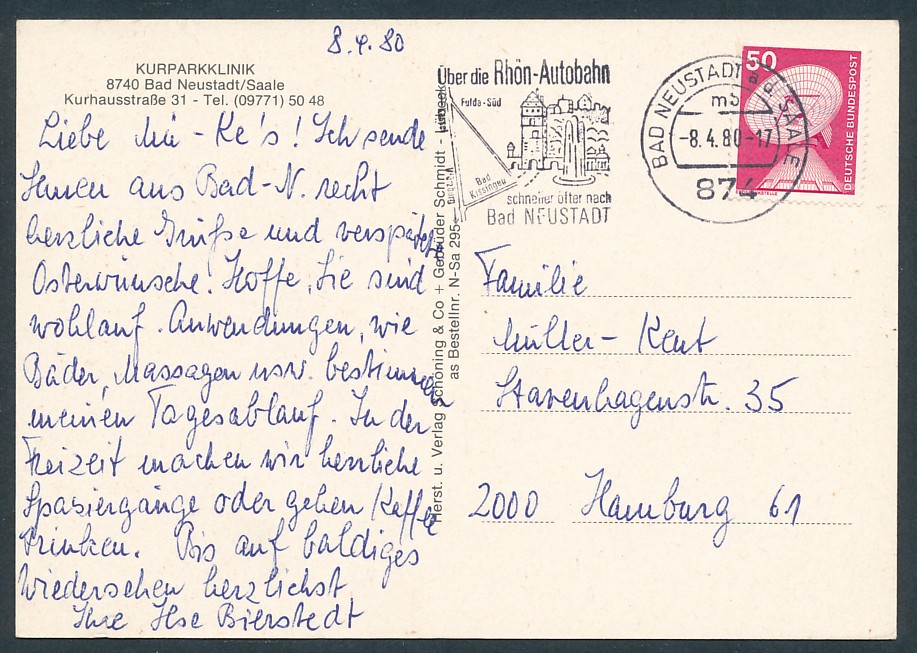 8.4.80
KURPARKKLINIK
8740 Bad Neustadt/Saale
Kurhausstraße 31 - Tel. (09771) 50 48
Liebe Mü - Ke's! Ich sende
Ihnen aus Bad-N. recht
herzliche Grüße und verspätete
Osterwünsche. Hoffe, Sie sind
wohlauf. Anwendungen, wie
Bäder, Massagen usw. bestimmen
meinen Tagesablauf. In der
Freizeit machen wir herrliche
Spaziergänge oder gehen Kaffee
trinken. Bis auf baldiges
Wiedersehen herzlichst
Ihre Ilse Bierstedt
Herst. u. Verlag Schöning & Co + Gebrüder Schmidt - Lübeck
as Bestellnr. N-Sa 295
Über die Rhön-Autobahn
Fulda-Süd
Bad
Kissingen
schneller öfter nach
Bad NEUSTADT
BAD NEUSTADT a d SAALE
-8.4.80-17
874
50
DEUTSCHE BUNDESPOST
Familie
Müller-Kent
Stavenhagenstr. 35
2000 Hamburg 61